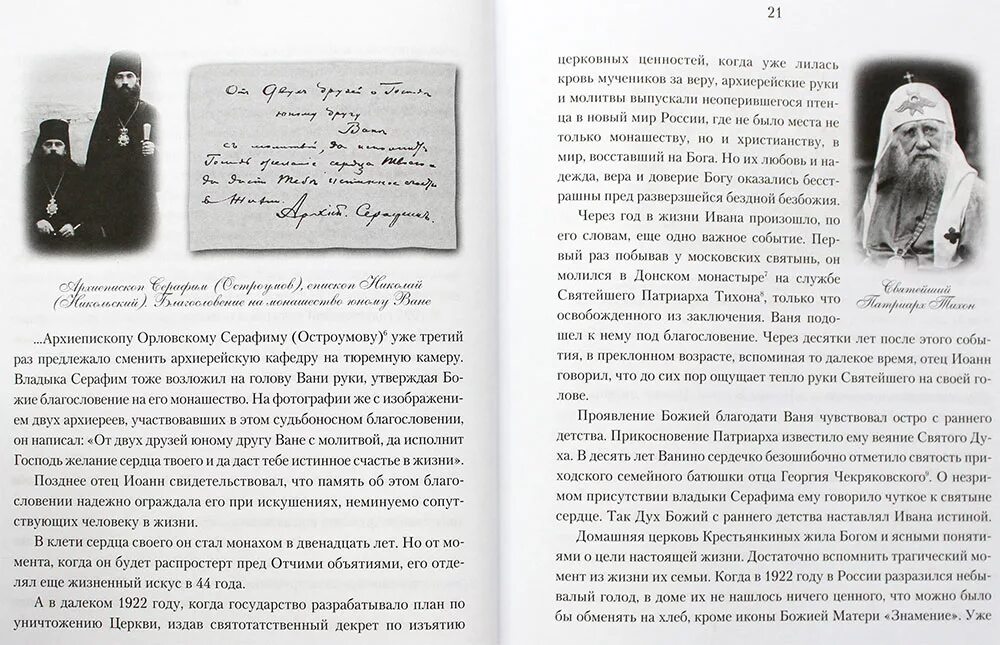 От двух друзей о Господе
юному другу
Ване
с молитвой, да исполнит
Господь желание сердца твоего
и да даст тебе истинное счастье
в жизни.
Архиеп. Серафим.
Архиепископ Серафим (Остроумов), епископ Николай
(Никольский). Благословение на монашество юному Ване
...Архиепископу Орловскому Серафиму (Остроумову)⁶ уже третий
раз предлежало сменить архиерейскую кафедру на тюремную камеру.
Владыка Серафим тоже возложил на голову Вани руки, утверждая Бо-
жие благословение на его монашество. На фотографии же с изображени-
ем двух архиереев, участвовавших в этом судьбоносном благословении,
он написал: «От двух друзей юному другу Ване с молитвой, да исполнит
Господь желание сердца твоего и да даст тебе истинное счастье в жизни».
Позднее отец Иоанн свидетельствовал, что память об этом благо-
словении надежно ограждала его при искушениях, неминуемо сопут-
ствующих человеку в жизни.
В клети сердца своего он стал монахом в двенадцать лет. Но от мо-
мента, когда он будет распростерт пред Отчими объятиями, его отде-
лял еще жизненный искус в 44 года.
А в далеком 1922 году, когда государство разрабатывало план по
уничтожению Церкви, издав святотатственный декрет по изъятию
21
церковных ценностей, когда уже лилась
кровь мучеников за веру, архиерейские руки
и молитвы выпускали неоперившегося птен-
ца в новый мир России, где не было места не
только монашеству, но и христианству, в
мир, восставший на Бога. Но их любовь и на-
дежда, вера и доверие Богу оказались бесст-
рашны пред разверзшейся бездной безбожия.
Через год в жизни Ивана произошло, по
его словам, еще одно важное событие. Пер-
вый раз побывав у московских святынь, он
молился в Донском монастыре⁷ на службе
Святейшего Патриарха Тихона⁸, только что
освобожденного из заключения. Ваня подо-
шел к нему под благословение. Через десятки лет после этого собы-
тия, в преклонном возрасте, вспоминая то далекое время, отец Иоанн
говорил, что до сих пор ощущает тепло руки Святейшего на своей го-
лове.
Святейший
Патриарх Тихон
Проявление Божией благодати Ваня чувствовал остро с раннего
детства. Прикосновение Патриарха известило ему веяние Святого Ду-
ха. В десять лет Ванино сердечко безошибочно отметило святость при-
ходского семейного батюшки отца Георгия Чекряковского⁹. О незри-
мом присутствии владыки Серафима ему говорило чуткое к святыне
сердце. Так Дух Божий с раннего детства наставлял Ивана истиной.
Домашняя церковь Крестьянкиных жила Богом и ясными поняти-
ями о цели настоящей жизни. Достаточно вспомнить трагический мо-
мент из жизни их семьи. Когда в 1922 году в России разразился небы-
валый голод, в доме их не нашлось ничего ценного, что можно было
бы обменять на хлеб, кроме иконы Божией Матери «Знамение». Уже